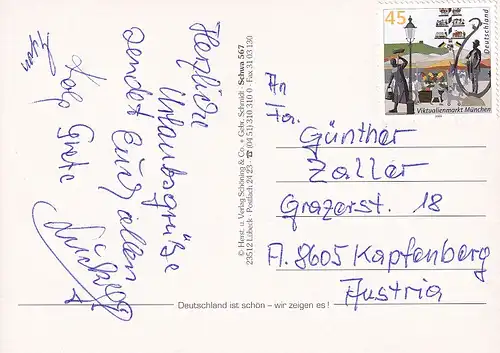 Herzliche
Urlaubsgrüße
sendet Euch allen
Grete
© Herst. u. Verlag Schöning & Co. + Gebr. Schmidt · Schwa 567
23512 Lübeck · Postfach 24 23 · ☎ (04 51) 310 310 0 · Fax 31 03 130
45
Deutschland
Viktualienmarkt München
An
Fa.
Günther
Zaller
Grazerst. 18
A. 8605 Kapfenberg
Austria
Deutschland ist schön – wir zeigen es !